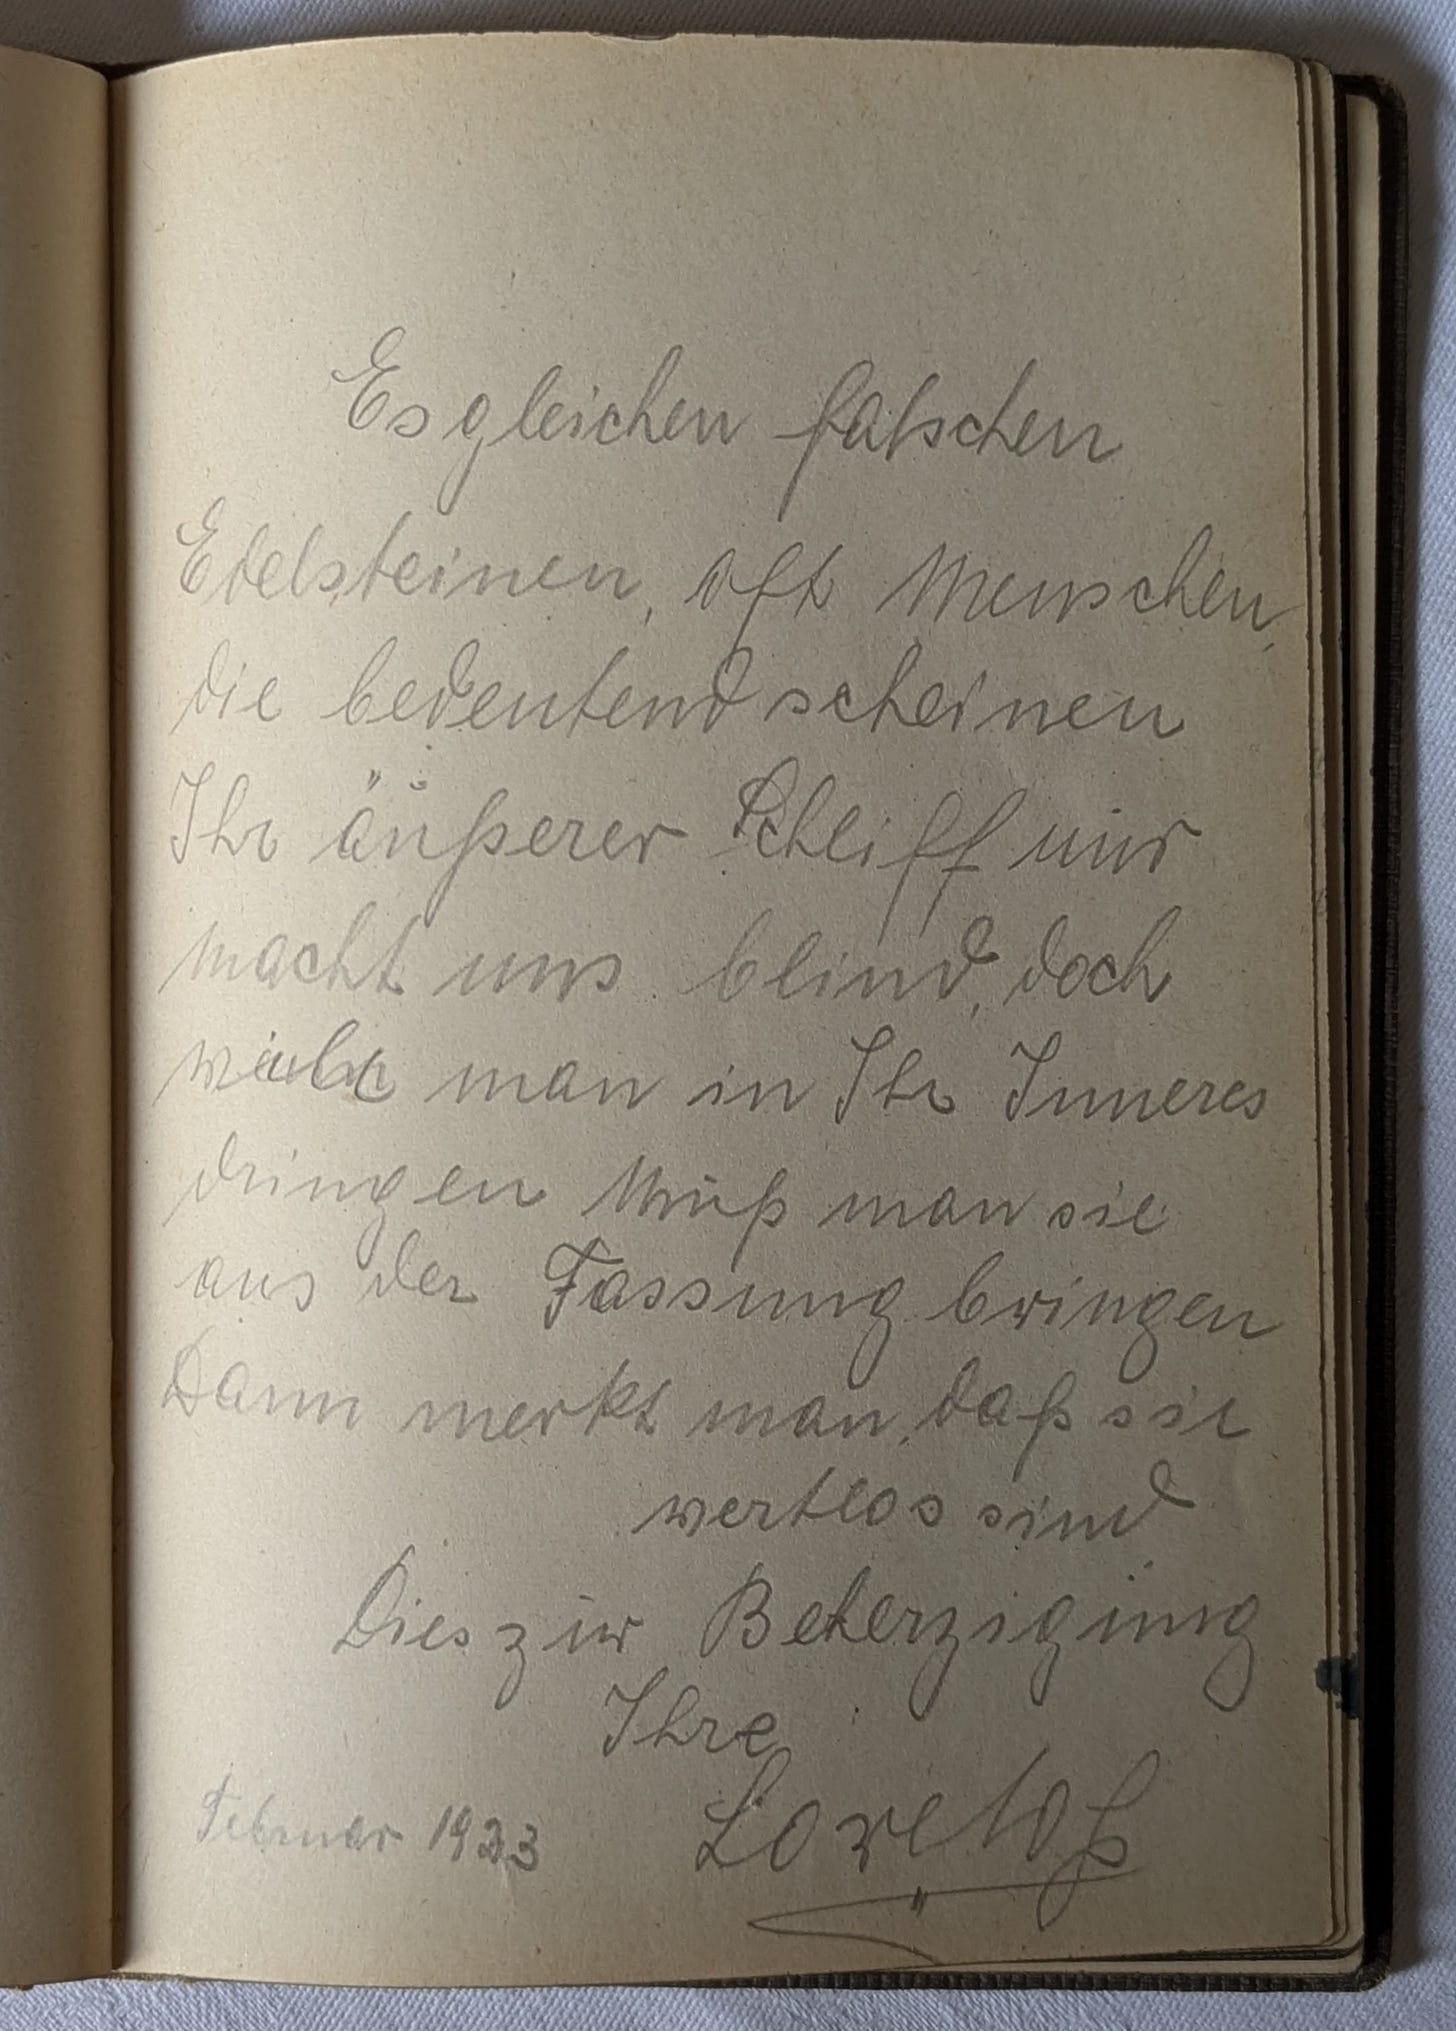 Es gleichen falschen
Edelsteinen, oft Menschen,
die bedeutend scheinen
Ihr äußerer Schliff nur
macht uns blind, doch
man in Ihr Inneres
dringen Muß man sie
aus der Fassung bringen
Dann merkt man, daß sie
wertlos sind
Dies zur Beherzigung
Ihre
Februar 1923